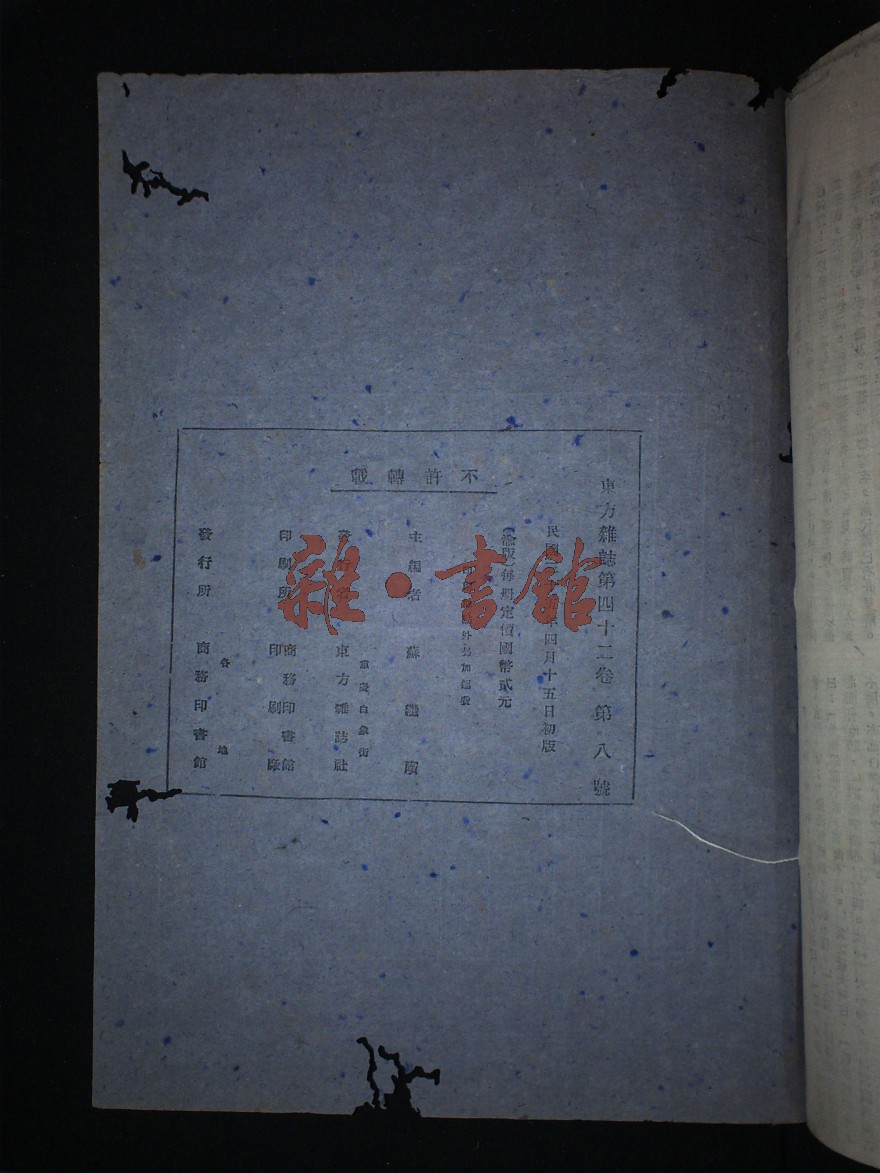 東方雜誌第四十二卷 第八號
民國 年四月十五日初版
(渝版)每册定價國幣貳元
外另加 費
不許轉載
主編者 蘇繼廎
發行者 重慶白象街 東方雜誌社
印刷所 商務印書館印刷廠
發行所 各地 商務印書館
雜·書館